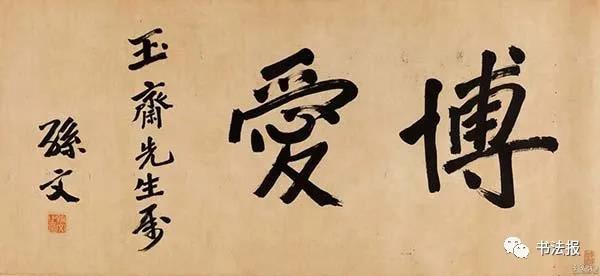 博愛
玉齋先生属
孫文
书法报